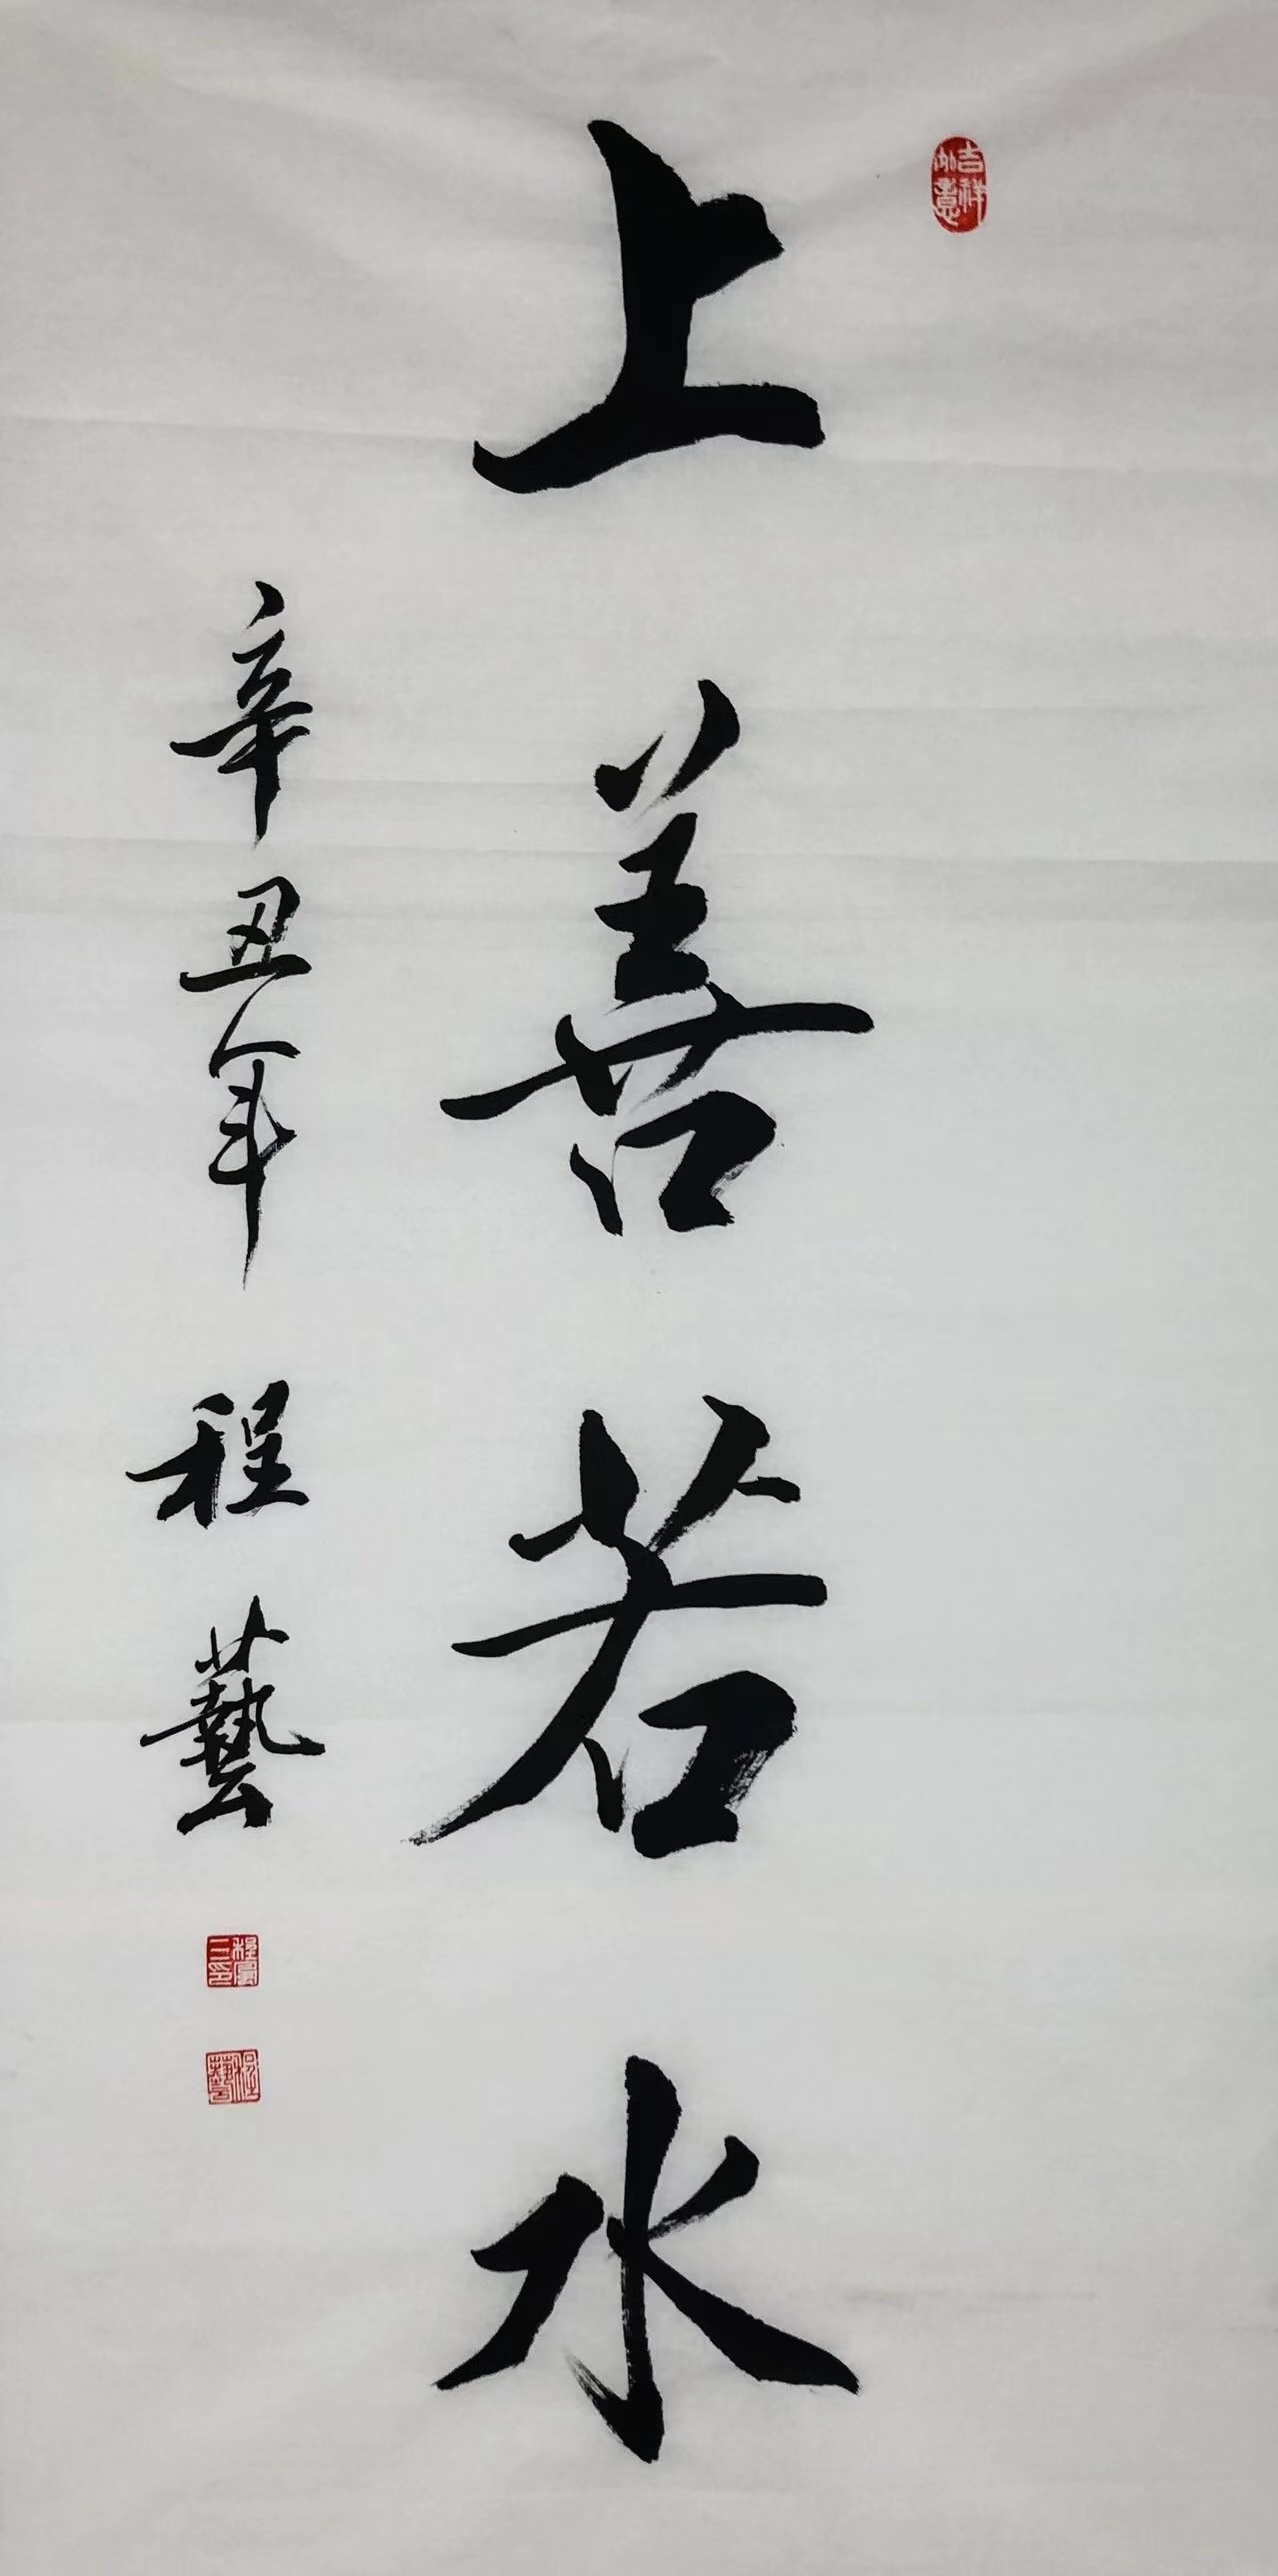 吉祥如意
上善若水
辛丑年 程藝